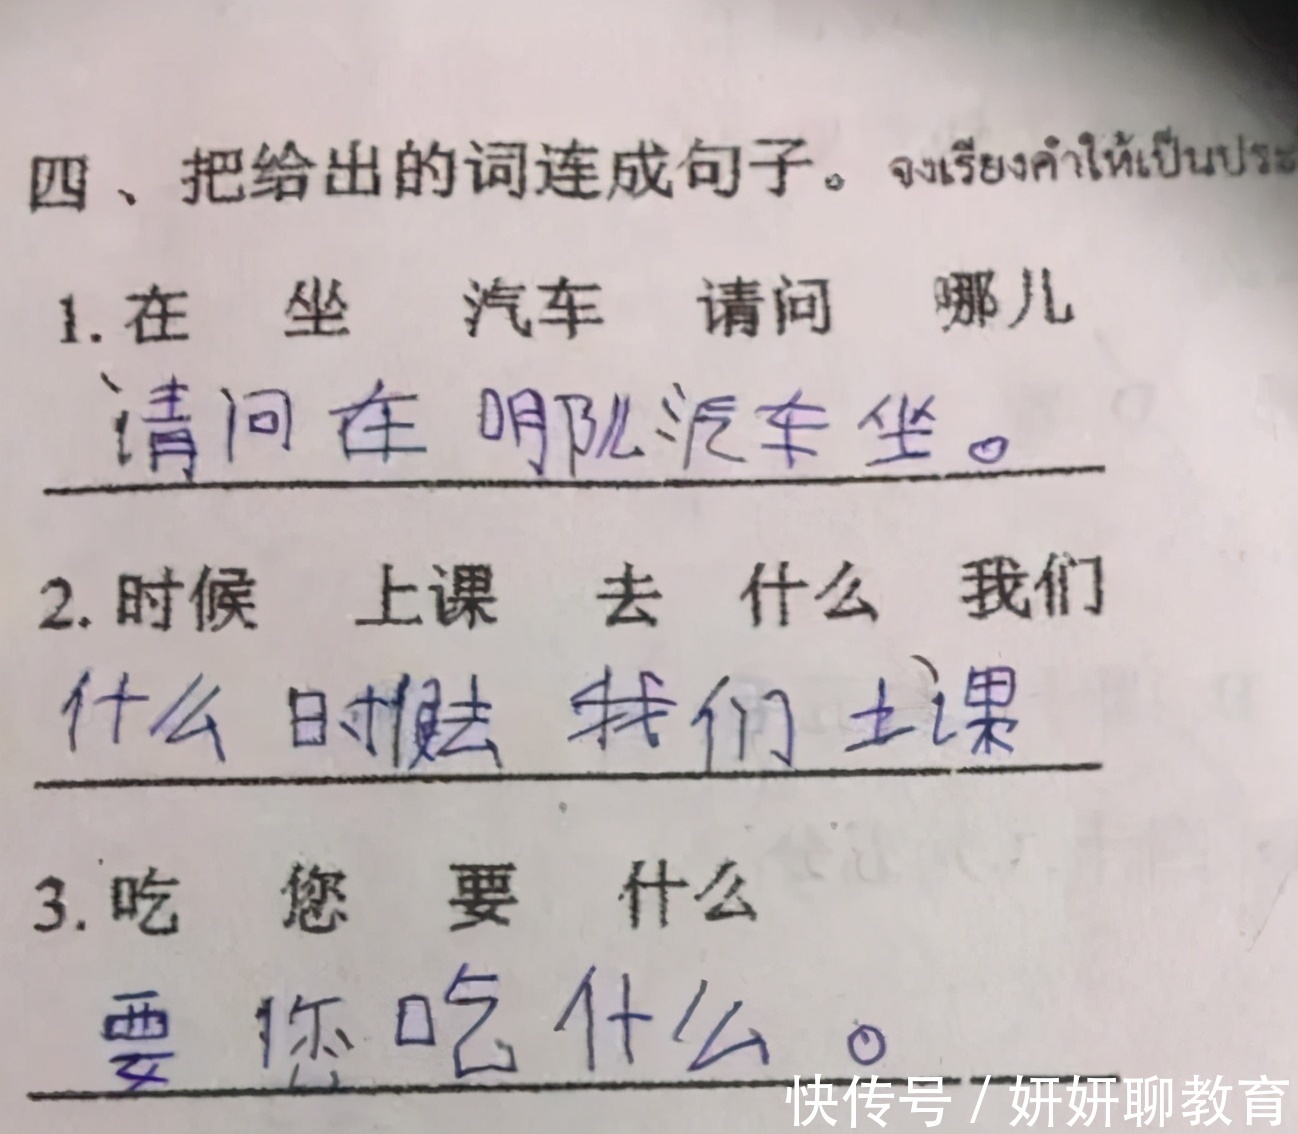 四、把给出的词连成句子。จงเรียงคำให้เป็นประ
1. 在 坐 汽车 请问 哪儿
请问在哪儿汽车坐。
2. 时候 上课 去 什么 我们
什么时候去我们上课
3. 吃 您 要 什么
要您吃什么。
快传号 / 妍妍聊教育